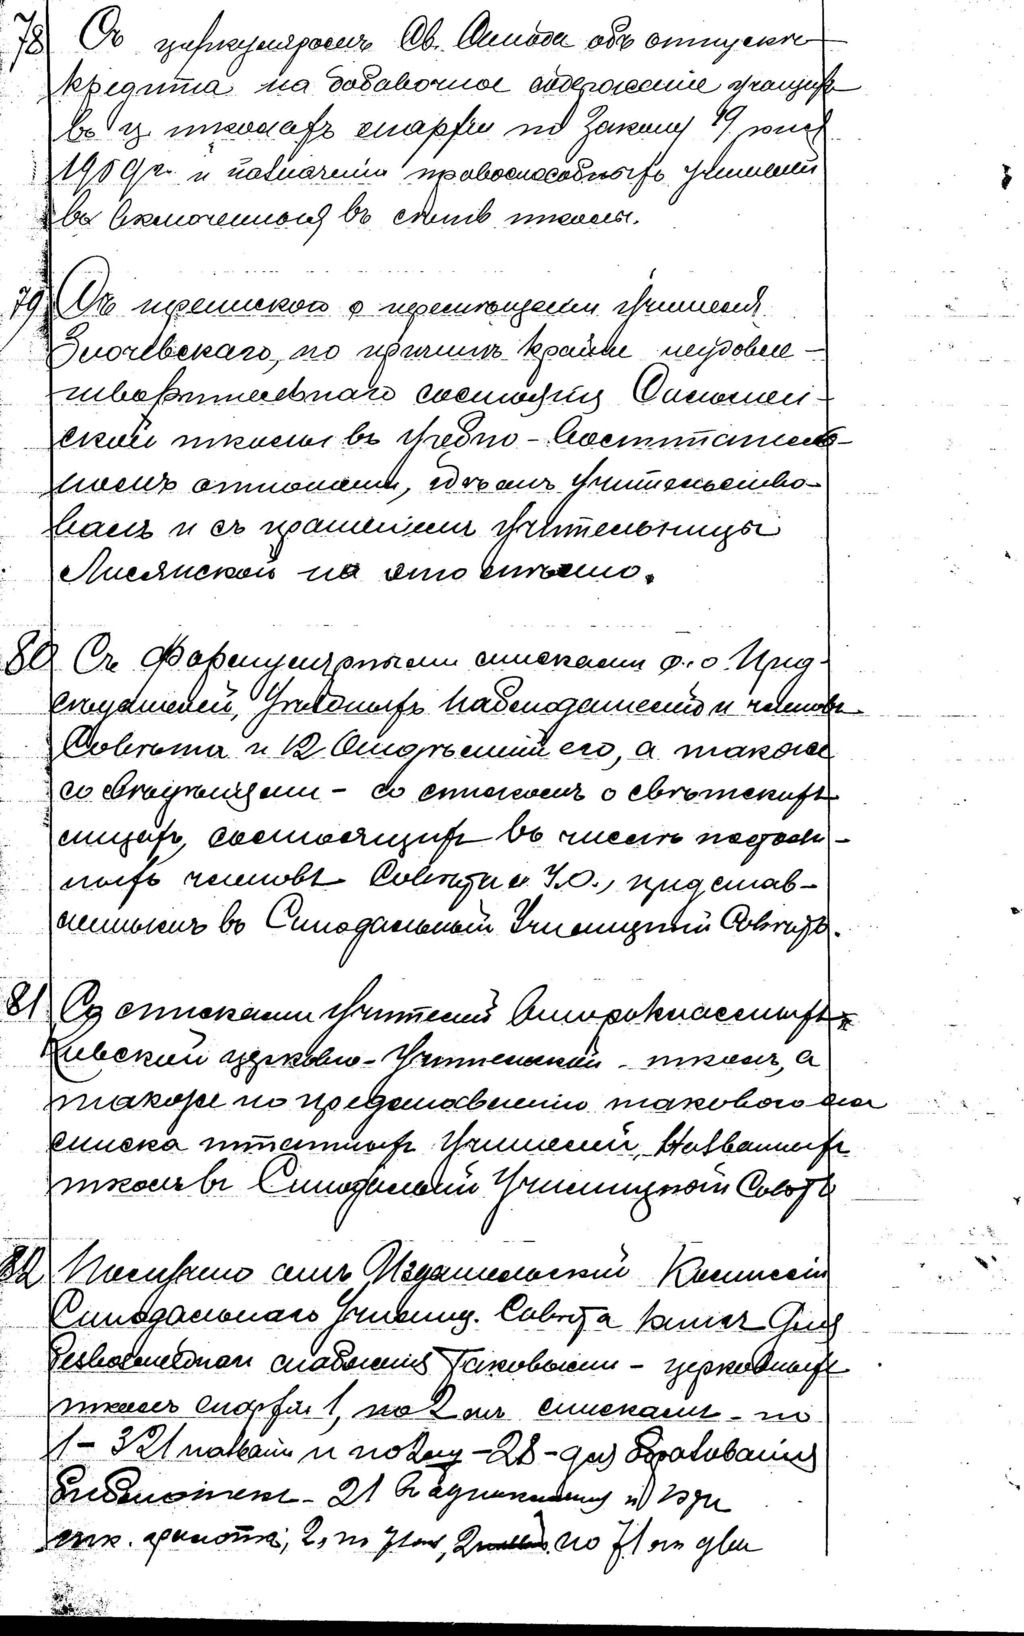 78 Съ циркуляромъ Св. Синода объ отпускѣ
кредита на добавочное содержаніе учащихъ
въ ц. школахъ епархіи по Закону 19 іюня
1909 г. и назначеніи правоспособныхъ учителей
въ включенныя въ сѣть школы.
79 Съ перепиской о перемѣщеніи учителя
Злочевскаго, по причинѣ крайне неудовле-
творительнаго состоянія
ской школы въ учебно-воспитатель-
номъ отношеніи, гдѣ онъ учительство-
валъ и съ прошеніемъ учительницы
Лисянской на это мѣсто.
80 Съ формулярными списками о.о. Пред-
сѣдателей, Уѣздныхъ Наблюдателей и членовъ
Совѣта и 12 Отдѣленій его, а также
со свѣдѣніями – со спискомъ о свѣтскихъ
лицахъ, состоящихъ въ числѣ постоян-
ныхъ членовъ Совѣта и У.О., представ-
леннымъ въ Синодальный Училищный Совѣтъ.
81 Со списками учителей второклассныхъ и
Кіевской церковно-учительской школъ, а
также по представленію такового же
списка штатныхъ учителей, названныхъ
школъ въ Синодальный Училищный Совѣтъ
82 Получено отъ Издательской Комиссіи
Синодальнаго Училищ. Совѣта книгъ для
безвозмезднаго снабженія таковыми – церковныхъ
школъ епархіи 1, по 2 мъ спискамъ – по
1 – 321 названію и по 2му – 28 – для образованія
библіотекъ – 21